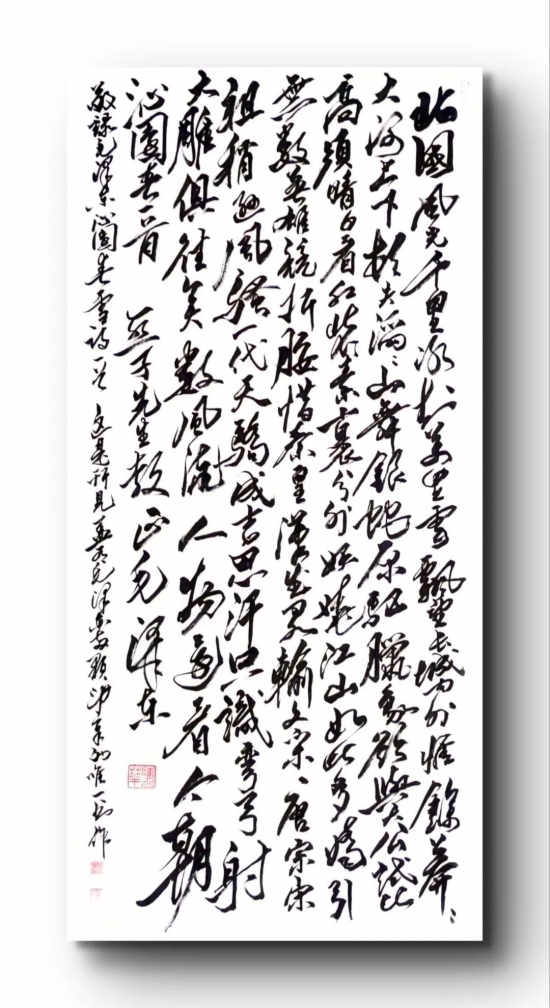 北國風光千里冰封萬里雪飄望長城內外惟餘莽〻
大河上下頓失滔〻山舞銀蛇原驅臘象欲與天公試比
高須晴日看紅裝素裹分外妖嬈江山如此多嬌引
無數英雄競折腰惜秦皇漢武略輸文采〻唐宗宋
祖稍遜風騷一代天驕成吉思汗只識彎弓射
大雕俱往矣數風流人物還看今朝
沁園春一首 亞子先生教正 毛澤東
敬錄毛澤東沁園春雪詩一首 這是所見 毛澤東 唯一 作